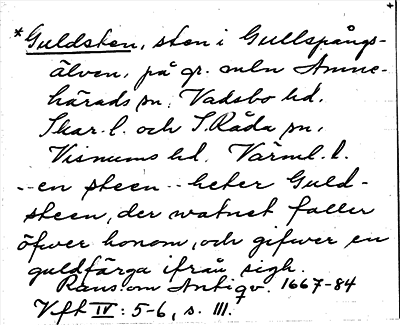 *Guldsten, sten i Gullspångs-
älven, på gr. mln Amne-
härads sn, Vadsbo hd,
Skar. l. och S. Råda sn,
Visnums hd, Värml. l.
--en steen--heter Guld-
steen, der watnet faller
öfwer honom, och gifwer en
guldfärga ifrån sigh.
Rans. om Antiqv. 1667-84
Vft IV: 5-6, s. III. 7